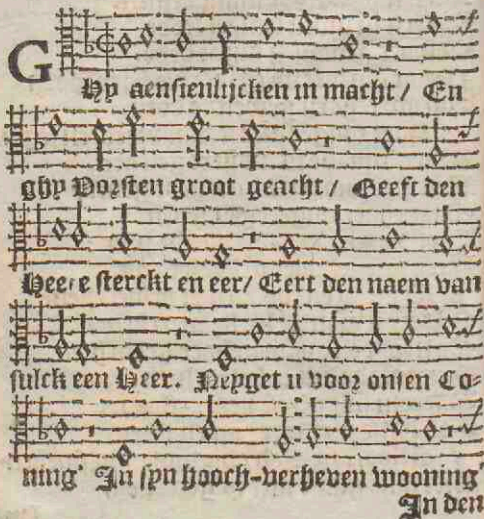 GHy aensienlijcken in macht / En
ghy Vorsten groot geacht / Geeft den
Heere sterckt en eer / Eert den naem van
sulck een Heer. Neyget u voor onsen Co-
ning' In syn hooch-verheven wooning'
In den